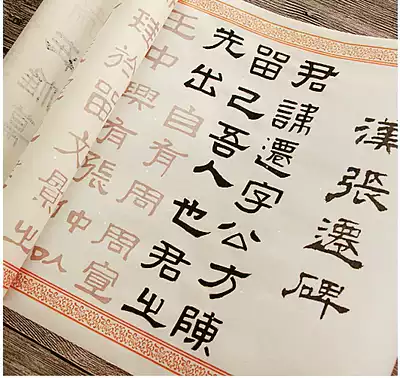 漢張遷碑
君諱遷字公方陳
留己吾人也君之
先出自有周周宣
王中興有張中以
於留文景之